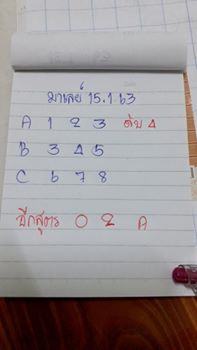 มาเลย์ 15.1 63
A 1 2 3 ดับ 4
B 3 4 5
C 6 7 8
อีกสูตร 0 2 A